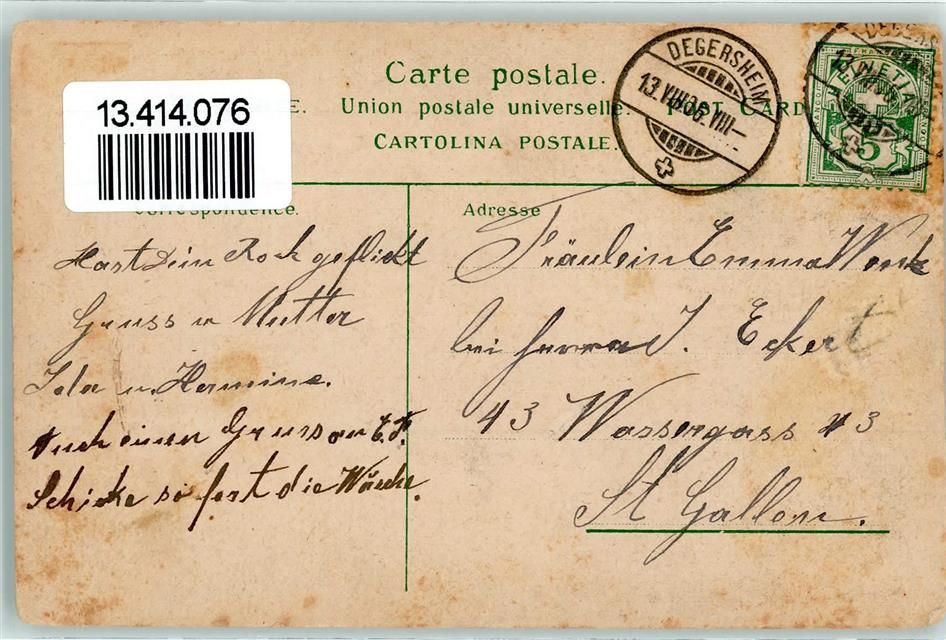 Carte postale.
13.414.076
E. Union postale universelle. POST CARD
CARTOLINA POSTALE.
DEGERSHEIM
13.VIII.06.VIII—
DEGERS
HELVETIA
5
Correspondence.
Adresse
Hast Dein Rock geflickt
Gruss v Mutter
Ida u. Hermine.
Auch einen Gruss an E.
Schicke so fort die Wäsche.
Fräulein Emma Wenk
bei Herrn J. Eckert
43 Wassergass 43
St Gallen.